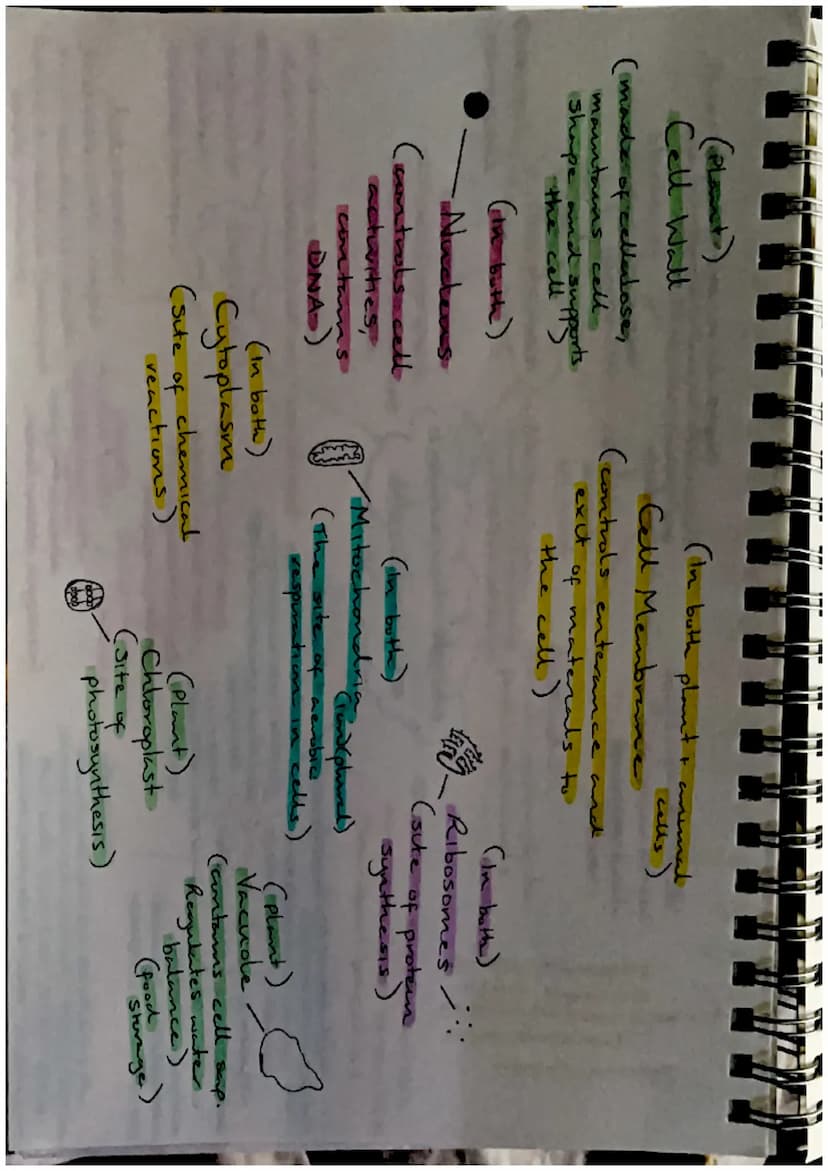 (Plant)
Cell Wall
(made of cellulose,
maintains cell
shape and supports
the cell)
(In both plant + animal
cells)
Cell Membrane
(controls enterance and
exit of materials to
the cell)
(In both)
Nucleus
(controls cell
activities,
contains
DNA)
(In both)
Mitochondria
(The site of aerobic
respiration in cells)
(In both)
Ribosomes
(site of protein
synthesis)
(In both)
Cytoplasm
(site of chemical
reactions)
(Plant)
Chloroplast
(Site of
photosynthesis)
(plant)
Vacuole
(contains cell sap.
Regulates water
balance)
(food
storage)